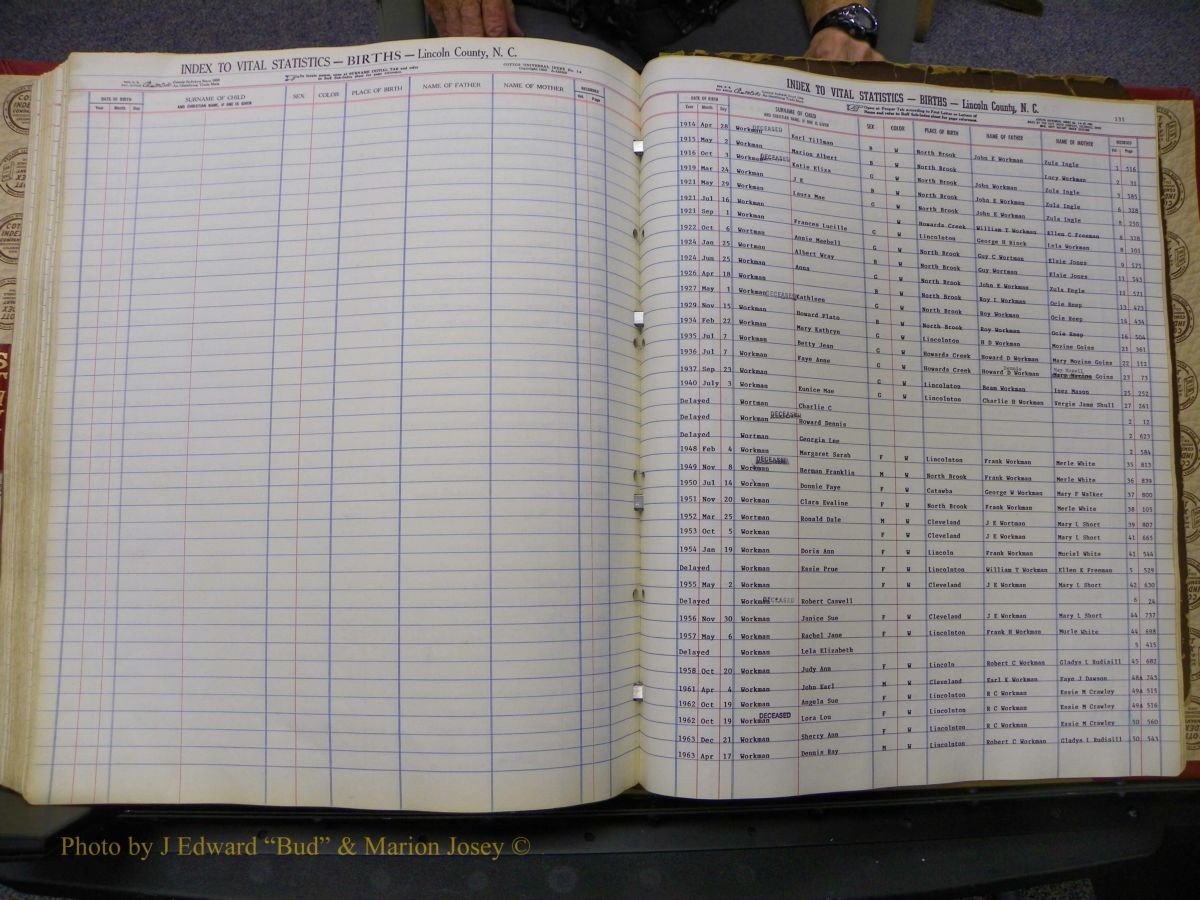 INDEX TO VITAL STATISTICS — BIRTHS — Lincoln County, N. C.
DATE OF BIRTH
Year Month Day
SURNAME OF CHILD
AND CHRISTIAN NAME, IF ONE IS GIVEN
SEX COLOR PLACE OF BIRTH NAME OF FATHER NAME OF MOTHER
RECORDED
Vol. Page
INDEX TO VITAL STATISTICS — BIRTHS — Lincoln County, N. C.
131
DATE OF BIRTH
Year Month Day
SURNAME OF CHILD
AND CHRISTIAN NAME, IF ONE IS GIVEN
SEX COLOR PLACE OF BIRTH NAME OF FATHER NAME OF MOTHER
RECORDED
Vol. Page
1914 Apr 28 Workman DECEASED Karl Tillman B W North Brook John E Workman Zula Ingle 1 516
1915 May 2 Workman Marion Albert B W North Brook Lucy Workman 2 31
1916 Oct 3 Workman DECEASED Katie Eliza G W North Brook John Workman Zula Ingle 3 585
1919 Mar 24 Workman J E B W North Brook John E Workman Zula Ingle 6 328
1921 May 29 Workman Laura Mae G W North Brook John E Workman Zula Ingle 8 250
1921 Jul 16 Workman W Howards Creek William T Workman Ellen C Freeman 8 328
1921 Sep 1 Workman Frances Lucille G W Lincolnton George H Lula Workman 8 101
1922 Oct 6 Wortman Annie Meebell G W North Brook Guy C Wortman Elsie Jones 9 575
1924 Jan 25 Wortman Albert Wray B W North Brook Guy Wortman Elsie Jones 11 543
1924 Jun 25 Workman Anna G W North Brook John E Workman Zula Engle 11 571
1926 Apr 18 Workman B W North Brook Roy L Workman Ocie Heep 13 473
1927 May 1 Workman DECEASED Kathleen G W North Brook Roy Workman Ocie Heep 14 434
1929 Nov 15 Workman Howard Plato B W North Brook Roy Workman Ocie Heep 16 504
1934 Feb 22 Workman Mary Kathryn G W Lincolnton H D Workman Mozine Goins 21 361
1935 Jul 7 Workman Betty Jean G W Howards Creek Howard D Workman Mary Mozine Goins 22 112
1936 Jul 7 Workman Faye Anne G W Howards Creek Howard Dennis D Workman Mary Mozine Goins 23 73
1937 Sep 23 Workman G W Lincolnton Beam Workman Inez Mason 25 252
1940 July 3 Workman Eunice Mae G W Lincolnton Charlie H Workman Vergie Jane Shull 27 261
Delayed Wortman Charlie C 2 12
Delayed Workman DECEASED Howard Dennis 2 623
Delayed Wortman Georgia Lee 2 584
1948 Feb 4 Workman Margaret Sarah F W Lincolnton Frank Workman Merle White 35 813
1949 Nov 8 Workman DECEASED Herman Franklin M W North Brook Frank Workman Merle White 36 839
1950 Jul 14 Workman Donnie Faye F W Catawba George W Workman Mary F Walker 37 800
1951 Nov 20 Workman Clara Evaline F W North Brook Frank Workman Merle White 38 105
1952 Mar 25 Wortman Ronald Dale M W Cleveland J E Wortman Mary L Short 39 807
1953 Oct 5 Workman F W Cleveland J E Workman Mary L Short 41 665
1954 Jan 19 Workman Doris Ann F W Lincoln Frank Workman Muriel White 41 544
Delayed Workman Essie Prue F W Lincolnton William T Workman Ellen K Freeman 5 529
1955 May 2 Workman F W Cleveland J E Workman Mary L Short 42 630
Delayed Workman DECEASED Robert Caswell 6 24
1956 Nov 30 Workman Janice Sue F W Cleveland J E Workman Mary L Short 44 737
1957 May 6 Workman Rachel Jane F W Lincolnton Frank H Workman Murle White 44 698
Delayed Workman Lela Elizabeth 5 415
1958 Oct 20 Workman Judy Ann F W Lincoln Robert C Workman Gladys L Rudisill 45 682
1961 Apr 4 Workman John Earl M W Cleveland Earl K Workman Faye J Dawson 48A 745
1962 Oct 19 Workman Angela Sue F W Lincolnton R C Workman Essie M Crawley 49A 515
1962 Oct 19 Workman DECEASED Lora Lou F W Lincolnton R C Workman Essie M Crawley 49A 516
1963 Dec 21 Workman Sherry Ann F W Lincolnton R C Workman Essie M Crawley 50 560
1963 Apr 17 Workman Dennis Ray M W Lincolnton Robert C Workman Gladys L Rudisill 50 543
Photo by J Edward “Bud” & Marion Josey ©